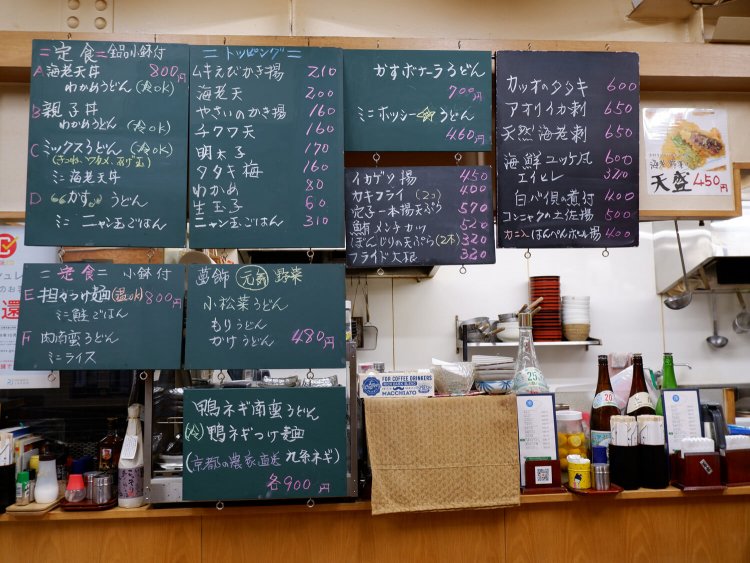 = 定食 = 全品小鉢付
A 海老天丼 800円
わかめうどん (冷ok)
B 親子丼
わかめうどん (冷ok)
C ミックスうどん (冷ok)
(きつね、ワカメ、
ミニ海老天丼
D "かす" うどん
ミニ ニャン玉ごはん
= トッピング =
ムキえびかき揚 210
海老天 200
やさいのかき揚 160
チクワ天 160
明太子 170
タタキ梅 160
わかめ 80
生玉子 60
ニャン玉ごはん 310
かすボナーラうどん
700円
ミニポッシー うどん
460円
イカゲソ揚 450
カキフライ (2コ) 400
穴子一本揚天ぷら 570
鮪メンチカツ 520
ぼんじりの天ぷら (2本) 320
フライド大根 320
カツオのタタキ 600
アオリイカ刺 650
天然海老刺 650
海鮮ユッケ風 600
エイヒレ 320
白バイ貝の煮付 400
コンニャクの土佐揚 500
カニ入はんぺんボール揚 400
天盛 450円
= 定食 = 小鉢付
E 担々つけ麺 (温ok) 800円
ミニ鮭ごはん
F 肉南蛮うどん
ミニライス
葛飾 元気野菜
小松菜うどん
もりうどん
かけうどん 480円
鴨ネギ南蛮うどん
(冷) 鴨ネギつけ麺
(京都の農家直送 九条ネギ)
各900円
FOR COFFEE DRINKERS
MACCHIATO